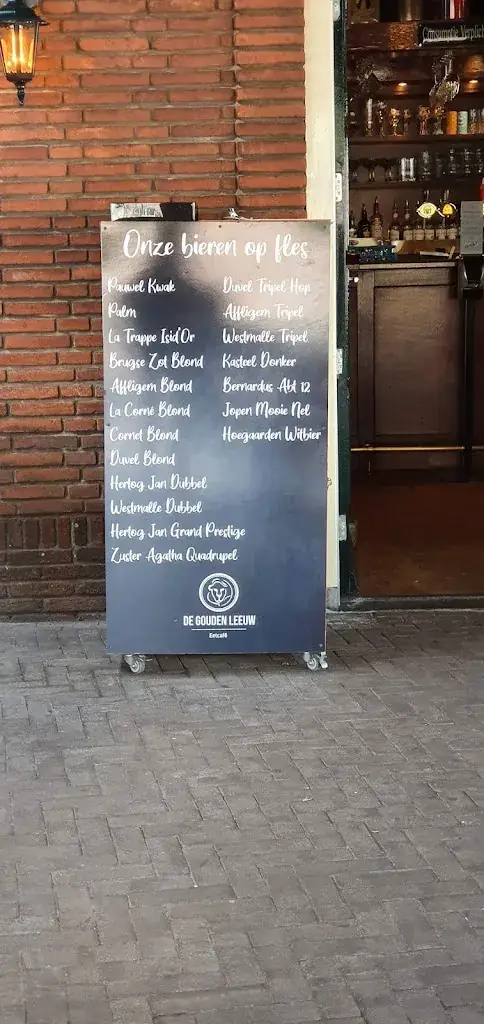 Onze bieren op fles
Pauwel Kwak
Palm
La Trappe Isid'Or
Brugse Zot Blond
Affligem Blond
La Corne Blond
Cornet Blond
Duvel Blond
Hertog Jan Dubbel
Westmalle Dubbel
Hertog Jan Grand Prestige
Zuster Agatha Quadrupel
Duvel Tripel Hop
Affligem Tripel
Westmalle Tripel
Kasteel Donker
Bernardus Abt 12
Jopen Mooie Nel
Hoegaarden Witbier
DE GOUDEN LEEUW
Eetcafé